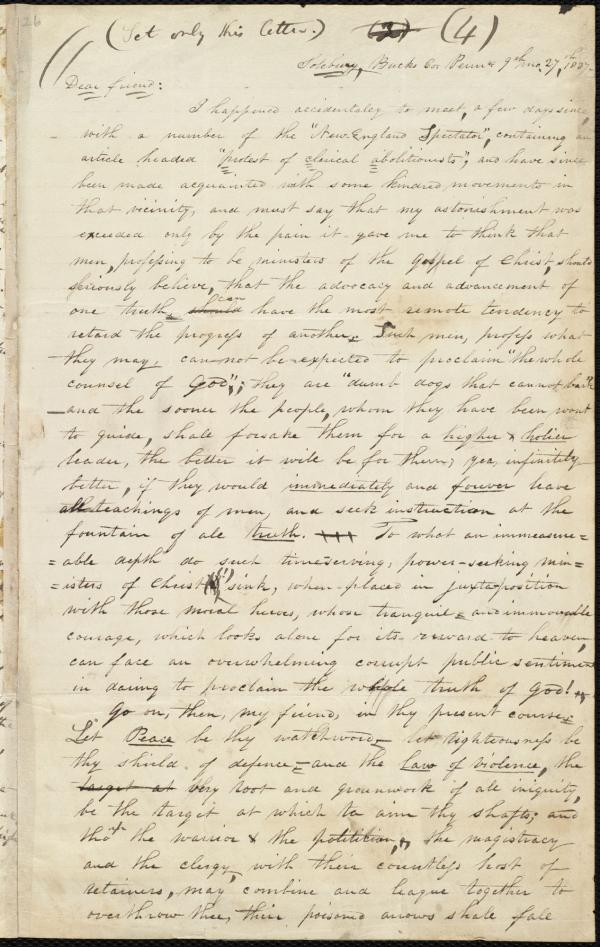 126
(Set only this letter.) (2) (4)
Solebury, Bucks Co. Penna 9th mo. 27th, 1837.
Dear friend:
I happened accidentaley to meet, a few days since,
with a number of the "New England Spectator", containing an
article headed "protest of clerical abolitionists"; and have since
been made acquainted with some kindred movements in
that vicinity, and must say that my astonishment was
exceeded only by the pain it gave me to think that
men, professing to be ministers of the gospel of Christ, should
seriously believe, that the advocacy and advancement of
one truth, should can have the most remote tendency to
retard the progress of another. Such men, profess what
they may, can not be expected to proclaim "the whole
counsel of God"; they are "dumb dogs that cannot bark"
—and the sooner the people, whom they have been wont
to guide, shall forsake them for a higher & holier
leader, the better it will be for them; yea, infinitely
better, if they would immediately and forever leave
all teachings of men, and seek instruction at the
fountain of all truth. To what an immeasure=
=able depth do such time-serving, power-seeking min=
=isters of Christ (!!) sink, when placed in juxtaposition
with those moral heroes, whose tranquil and immovable
courage, which looks alone for its reward to heaven,
can face an overwhelming corrupt public sentiment
in daring to proclaim the whole truth of God!
Go on, then, my friend, in thy present course.
Let Peace be thy watchword,— let righteousness be
thy shield of defence—and the law of violence, the
target at very root and groundwork of all iniquity,
be the target at which to aim thy shafts; and
tho' the warrior & the politician, the magistracy
and the clergy, with their countless host of
retainers, may combine and league together to
overthrow thee, their poisoned arrows shall fall